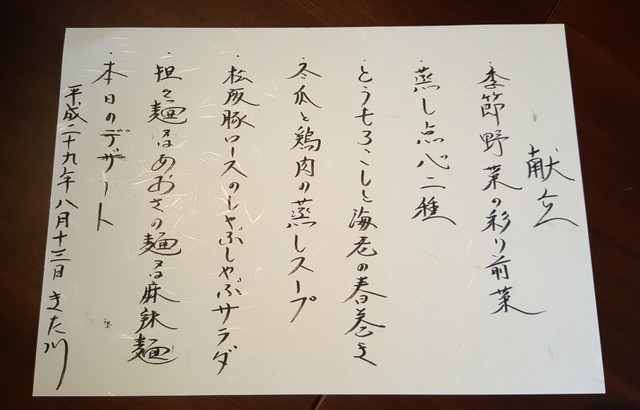 献立
・季節野菜の彩り前菜
・蒸し点心二種
・とうもろこしと海老の春巻き
・冬瓜と鶏肉の蒸しスープ
・松阪豚ロースのしゃぶしゃぶサラダ
・担々麺又はあおさの麺又は麻辣麺
・本日のデザート
平成二十九年八月十三日 きた川